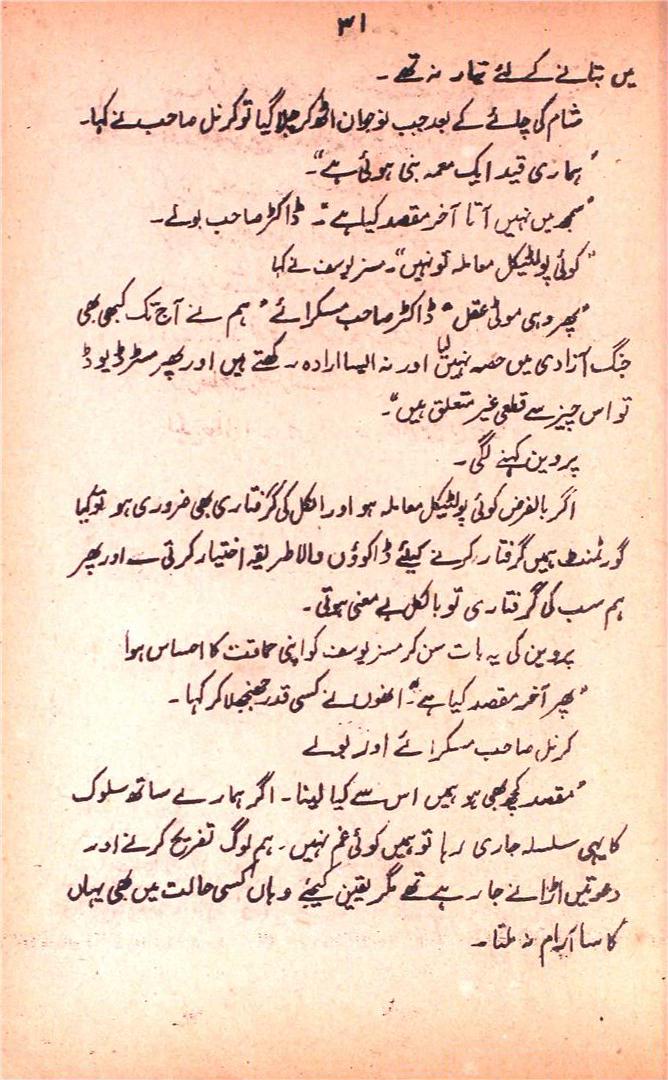 ۳۱
میں بتانے کے لئے تیار نہ تھے۔
شام کی چائے کے بعد جب نوجوان اٹھ کر چلا گیا تو کرنل صاحب نے کہا۔
"ہماری قید ایک معمہ بنی ہوئی ہے"۔
"سمجھ میں نہیں آتا آخر مقصد کیا ہے"۔ ڈاکٹر صاحب بولے۔
"کوئی پولٹیکل معاملہ تو نہیں"۔ مسز یوسف نے کہا
"پھر وہی موٹی عقل" ڈاکٹر صاحب مسکرائے "ہم نے آج تک کبھی بھی
جنگ آزادی میں حصہ نہیں لیا اور نہ ایسا ارادہ رکھتے ہیں اور پھر مسٹر ڈیوڈ
تو اس چیز سے قطعی غیر متعلق ہیں"۔
پروین کہنے لگی۔
اگر بالفرض کوئی پولٹیکل معاملہ ہو اور انکل کی گرفتاری بھی ضروری ہو تو کیا
گورنمنٹ ہمیں گرفتار کرنے کیلئے ڈاکوؤں والا طریقہ اختیار کرتی ــ اور پھر
ہم سب کی گرفتاری تو بالکل بے معنی ہوتی۔
پروین کی یہ بات سن کر مسز یوسف کو اپنی حماقت کا احساس ہوا
"پھر آخر مقصد کیا ہے"۔ انھوں نے کسی قدر جھنجھلا کر کہا۔
کرنل صاحب مسکرائے اور بولے
"مقصد کچھ بھی ہو ہمیں اس سے کیا لینا۔ اگر ہمارے ساتھ سلوک
کا یہی سلسلہ جاری رہا تو ہمیں کوئی غم نہیں۔ ہم لوگ تفریح کرنے اور
دعوتیں اڑانے جا رہے تھے مگر یقین کیجئے وہاں کسی حالت میں بھی یہاں
کا سا آرام نہ ملتا۔